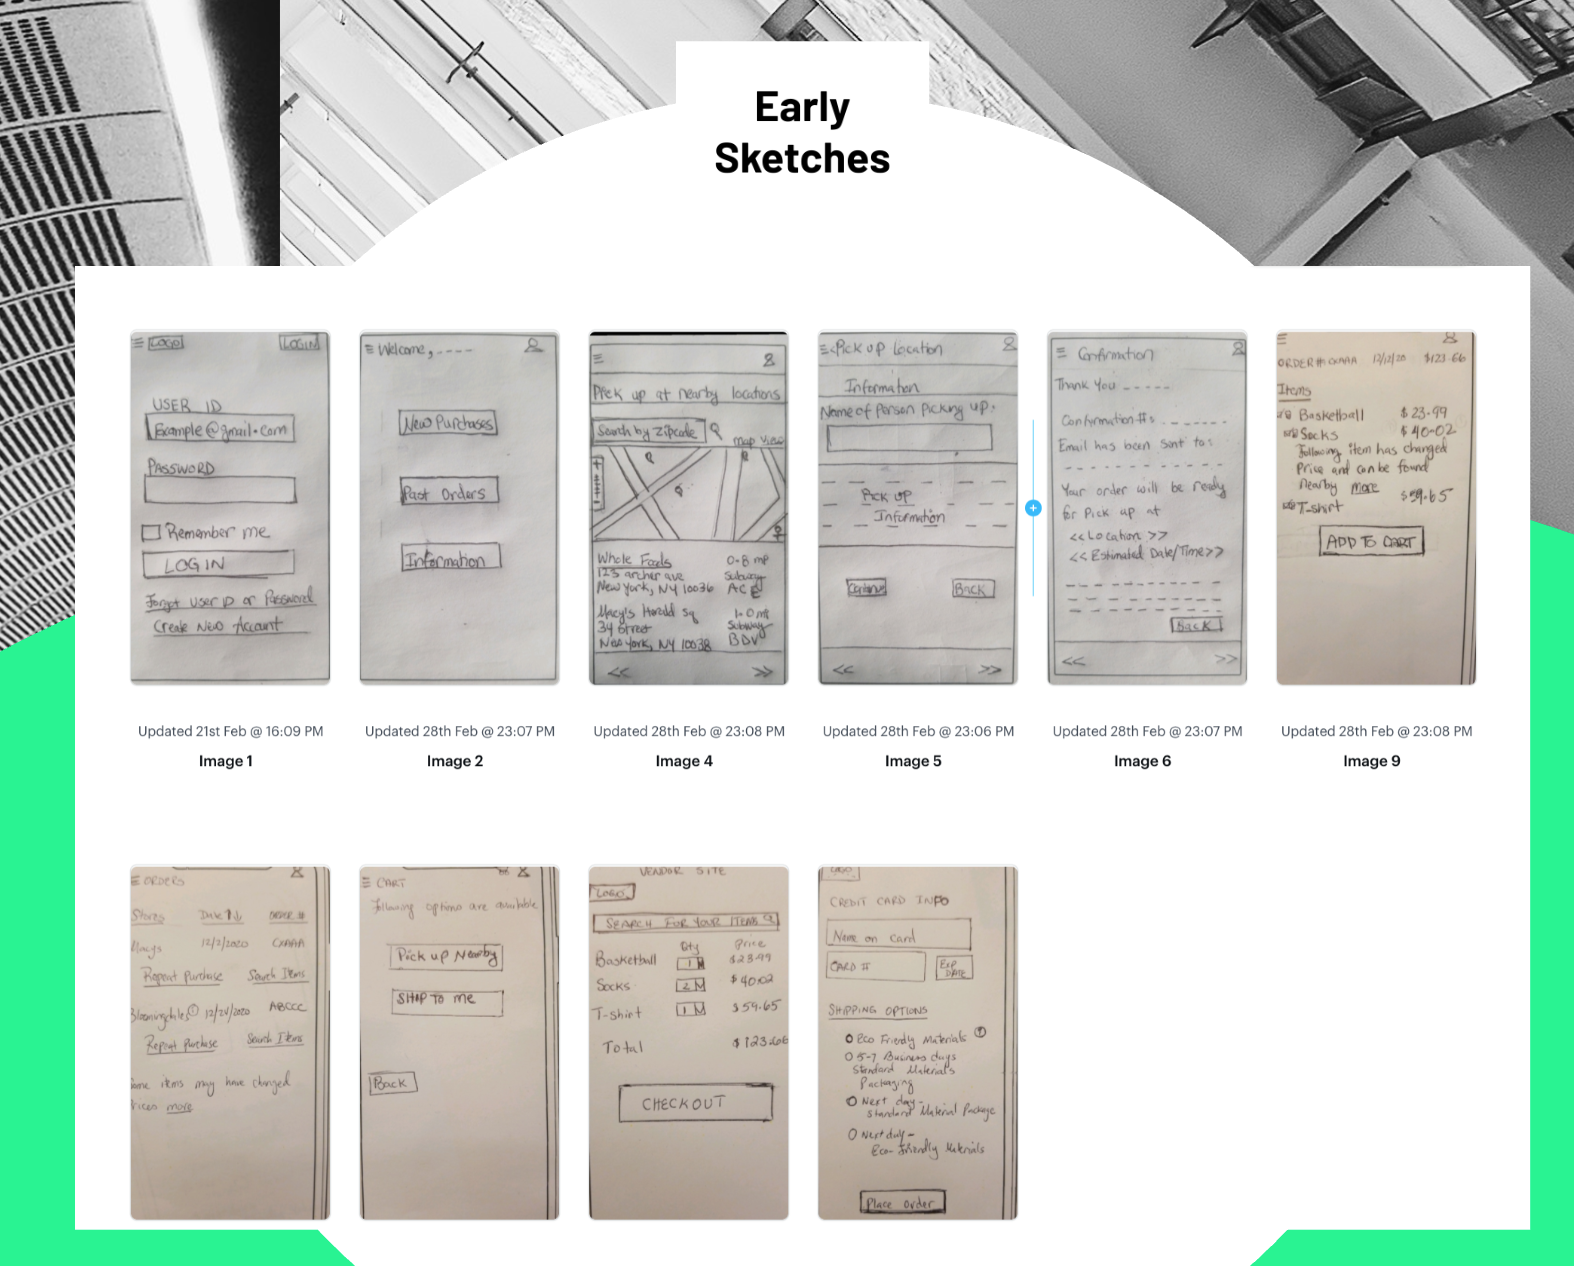 Early
Sketches
LOGO
LOGIN
USER ID
Example@gmail.com
PASSWORD
Remember me
LOGIN
Forgot User ID or Password
Create New Account
Updated 21st Feb @ 16:09 PM
Image 1
Welcome, ----
New Purchases
Past Orders
Information
Updated 28th Feb @ 23:07 PM
Image 2
Pick up at nearby locations
Search by Zipcode
map view
Whole Foods 0.8 mi
123 archer ave Subway
New York, NY 10036 A C E
Macy's Herald Sq 1.0 mi
34 Street Subway
New York, NY 10038 B D V
<< >>
Updated 28th Feb @ 23:08 PM
Image 4
Pick up Location
Information
Name of Person Picking up:
Pick up
Information
Continue Back
<< >>
Updated 28th Feb @ 23:06 PM
Image 5
Confirmation
Thank You ------
Confirmation #: ------
Email has been sent to:
Your order will be ready
for Pick up at
<<Location>>
<<Estimated Date/Time>>
Back
<< >>
Updated 28th Feb @ 23:07 PM
Image 6
ORDER # CXAAA 12/12/20 $123.66
Items
Basketball $23.99
Socks $40.02
Following item has changed
Price and can be found
nearby more
T-shirt $59.65
ADD TO CART
Updated 28th Feb @ 23:08 PM
Image 9
ORDERS
Stores Date ORDER #
Macys 12/2/2020 CXAAA
Repeat Purchase Search Items
Bloomingdales 12/24/2020 ABCCC
Repeat Purchase Search Items
items may have changed
more
CART
Following options are available
Pick up Nearby
SHIP TO me
Back
VENDOR SITE
LOGO
SEARCH FOR YOUR ITEMS
Qty Price
Basketball 1 $23.99
Socks 2 $40.02
T-shirt 1 $59.65
Total $123.66
CHECKOUT
LOGO
CREDIT CARD INFO
Name on Card
CARD #
EXP DATE
SHIPPING OPTIONS
Eco Friendly Materials
5-7 Business days
Standard Materials
Packaging
Next day -
Standard Material Package
Next day -
Eco-friendly Materials
Place Order